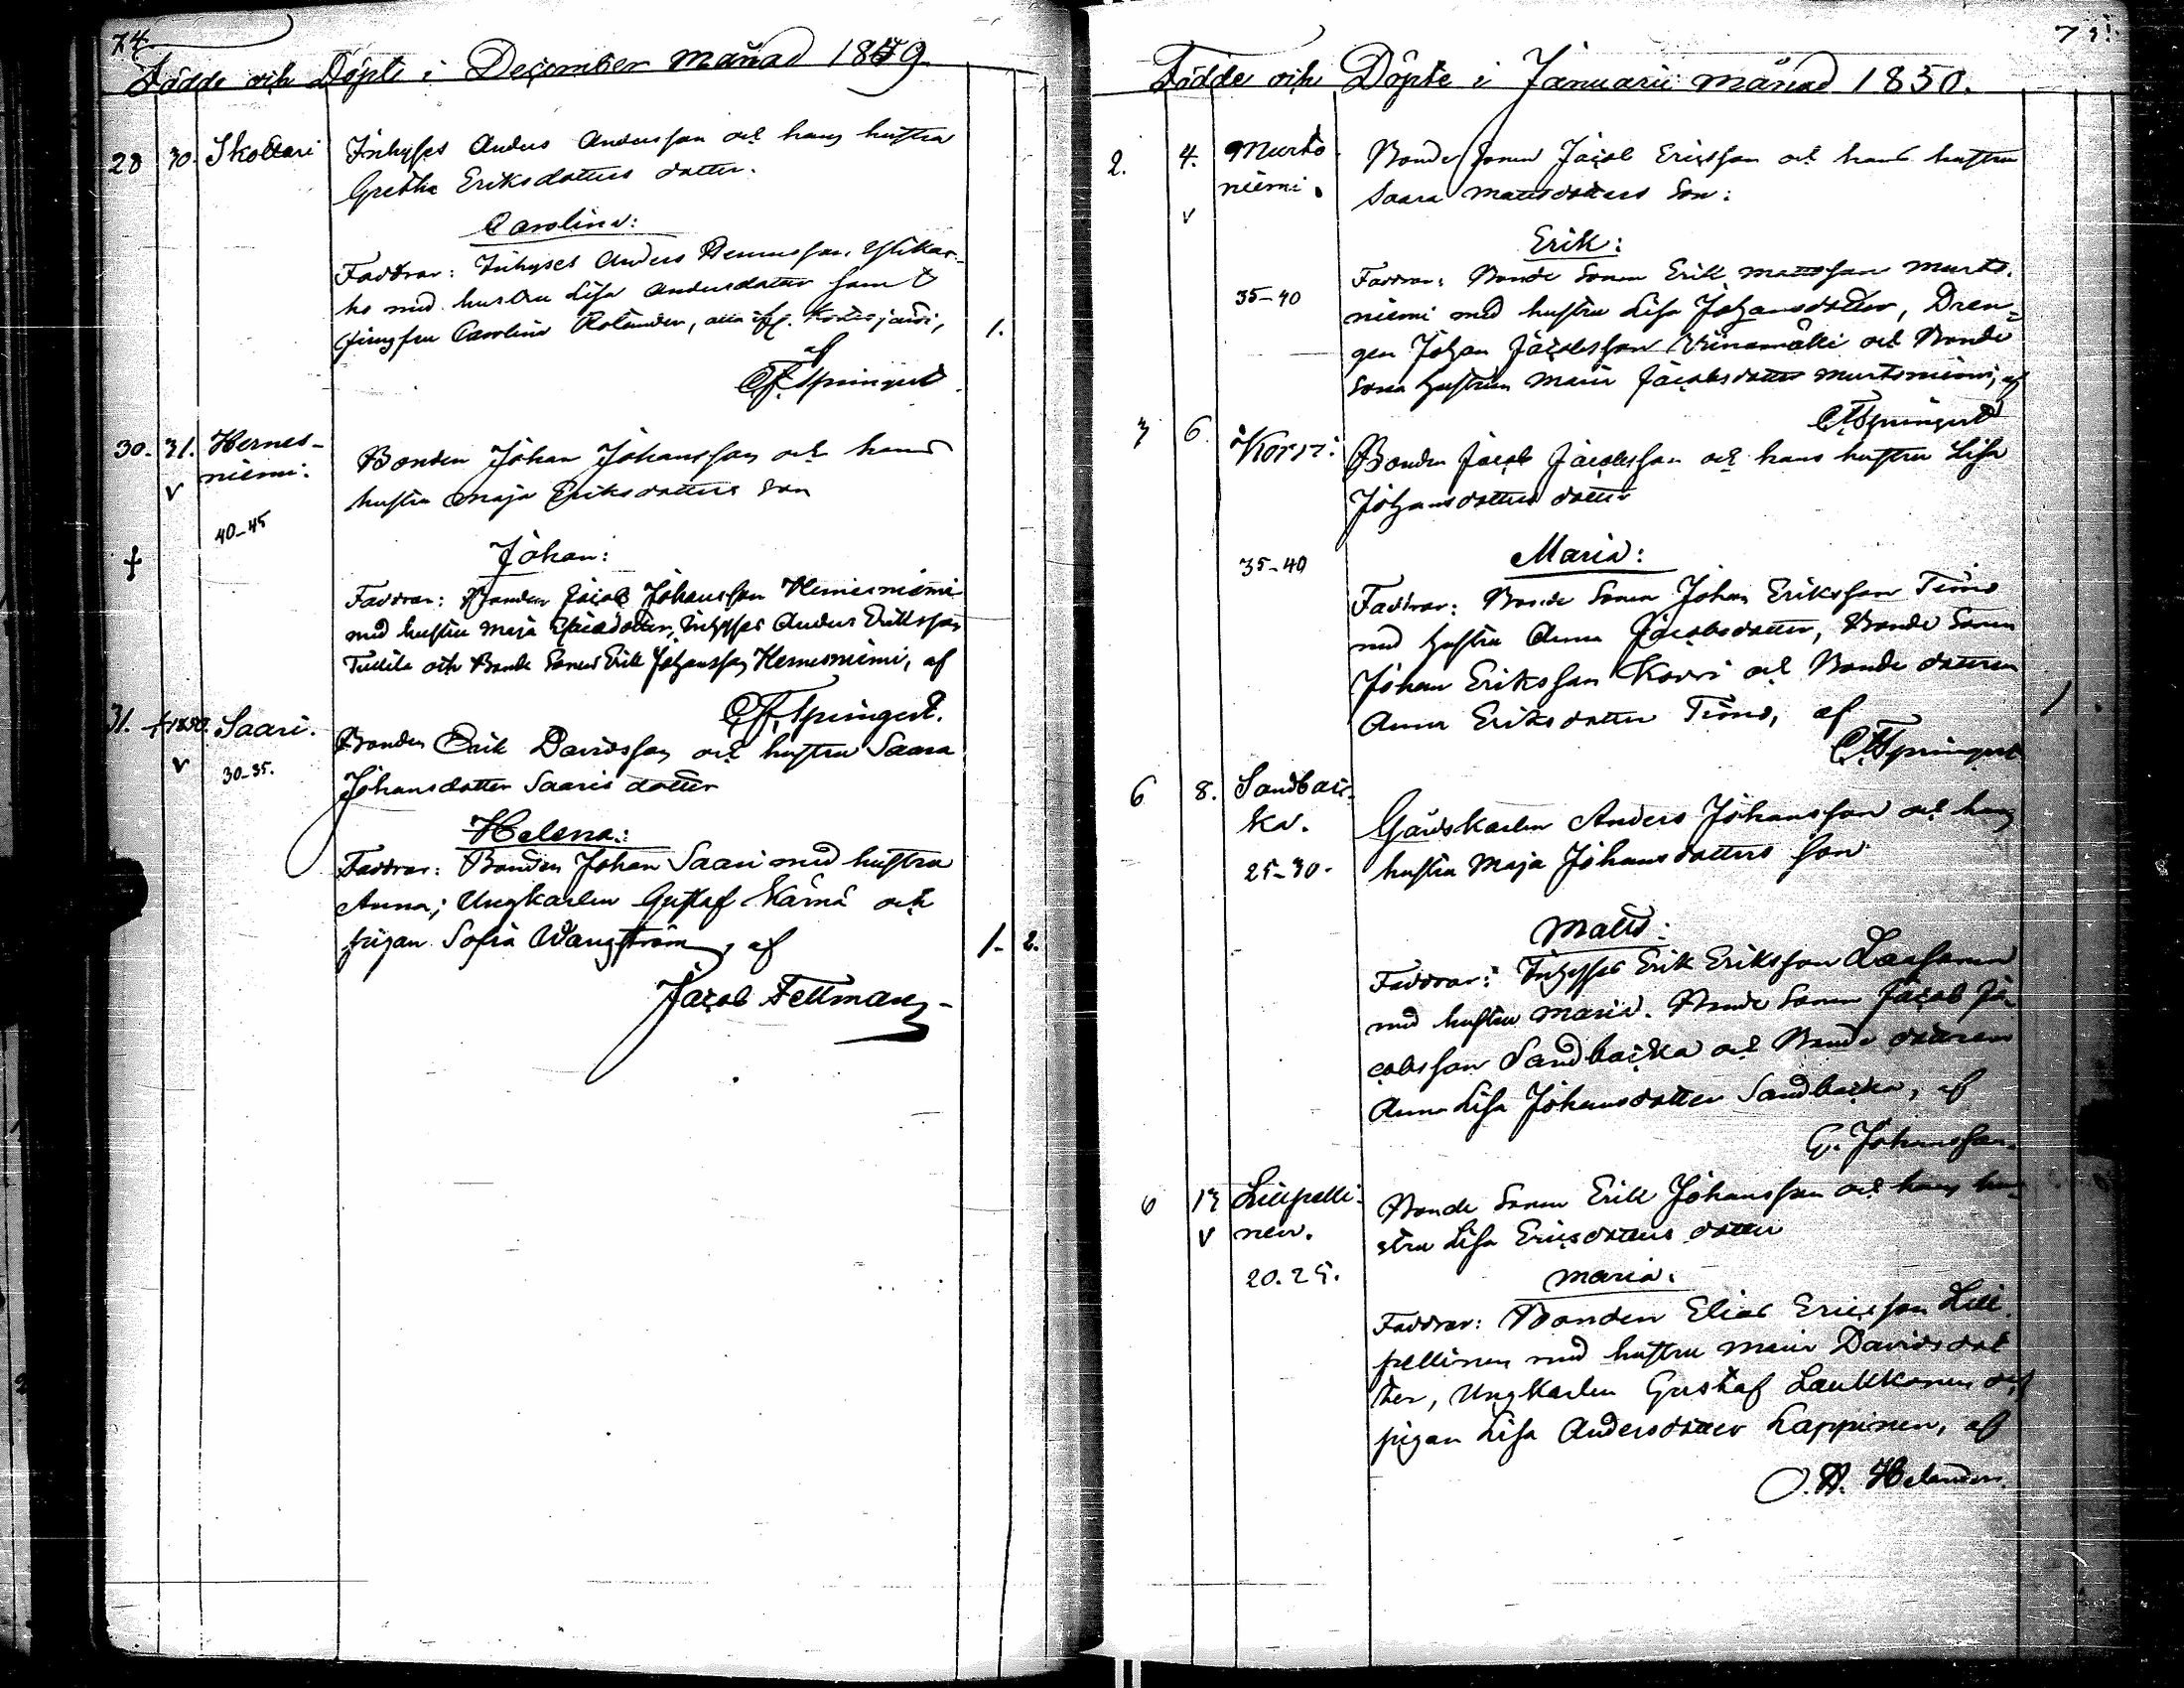 74
Födde och Döpte i December månad 1849
28 30. Skottari Inhyses Anders Andersson och hans hustru
Gretha Eriksdotters dotter.
Carolina:
Faddrar: Inhyses Anders
ho med hustru Lisa Andersdotter samt
jungfru Carolina Rolander, alla ifr.
1.
af
CF. Springert
30. 31. Hernes-
niemi.
v
40-45
Bonden Johan Johansson och hans
hustru Maja Eriksdotters son
†
Johan:
Faddrar: Bonden Jacob Johansson Hernesniemi
med hustru Maja, Inhyses Anders Eriksson
och Bonde Sonen Erik Johansson Hernesniemi, af
CF. Springert.
31. 1850. Saari.
v 30-35.
Bonden Erik Davidsson och hustru Saara
Johansdotter Saaris dotter
Helena:
Faddrar: Bonden Johan Saari med hustru
Anna; Ungkarlen Gustaf Kärnä och
pigan Sofia Wangström, af
1. 2.
Jacob Fellman
75.
Födde och Döpte i Januarii månad 1850.
2. 4. Murto
niemi.
v
Bonde Sonen Jacob Ericsson och hans hustru
Saara Mattsdotters Son:
Erik:
35-40
Faddrar: Bonde Sonen Erik Mattsson Murto
niemi med hustru Lisa Johansdotter, Dren-
gen Johan Jacobsson och Bonde
Sona hustrun Maria Jacobsdotter Murtoniemi, af
CF. Springert
3 6 Korri:
Bonden Jacob Jacobsson och hans hustru Lisa
Johansdotters dotter
Maria:
35-40
Faddrar: Bonde Sonen Johan Eriksson Timo
med hustru Anna Jacobsdotter, Bonde Sonen
Johan Eriksson Korri och Bonde dottren
Anna Eriksdotter Timo, af
1
CF. Springert
6 8. Sandbac-
ka.
25-30.
Gårdskarlen Anders Johansson och hans
hustru Maja Johansdotters son
Matts:
Faddrar: Inhyses Erik Eriksson
med hustru Maria. Bonde Sonen Jacob Ja-
cobsson Sandbacka och Bonde dottren
Anna Lisa Johansdotter Sandbacka, af
G. Johansson.
6 13 Lillpelli-
v nen.
20.25.
Bonde Sonen Erik Johansson och hans hu-
stru Lisa Ericsdotters dotter
Maria.
Faddrar: Bonden Elias Ericsson Lill
pellinen med hustru Maria Davidsdot
ter, Ungkarlen Gustaf Laukkanen och
pigan Lisa Andersdotter Lappinen, af
O. A. Helander.